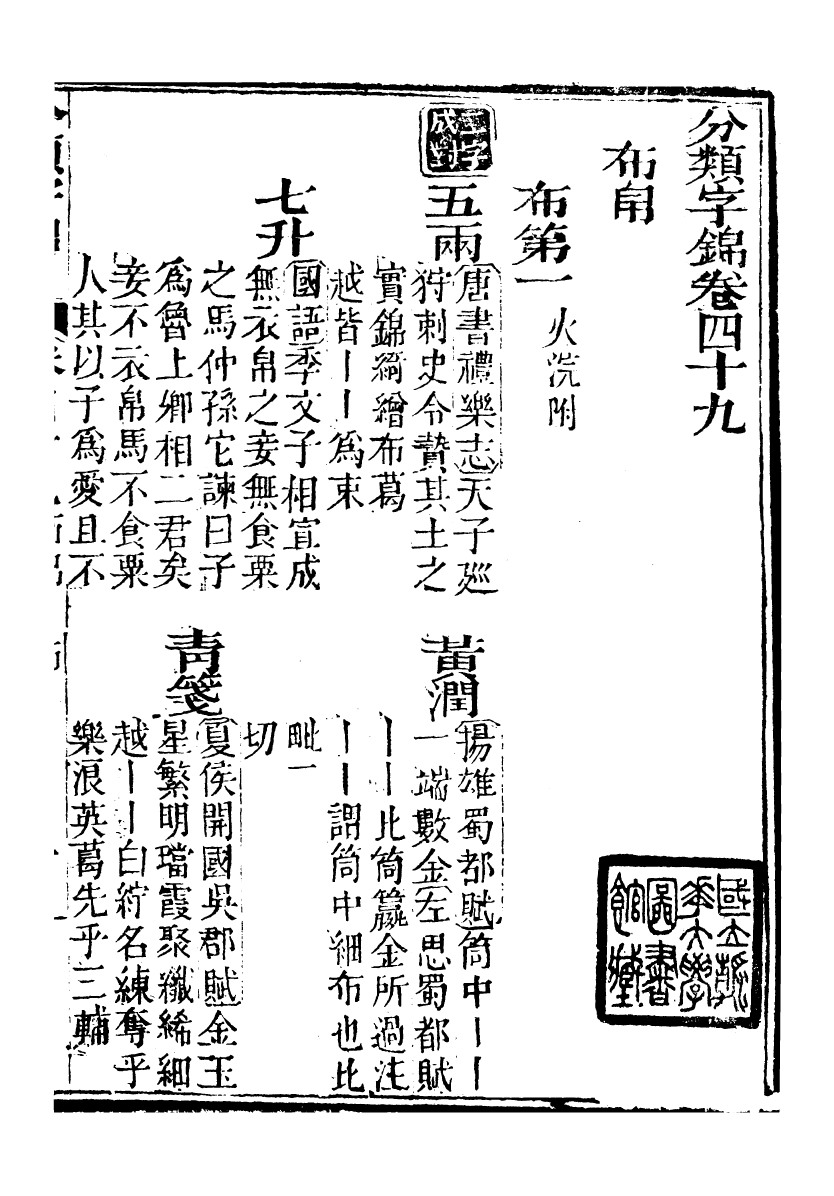 分類字錦卷四十九
國立清
華大學
圖書
館藏
布帛
布第一 火浣附
二字
成對
五兩
唐書禮樂志天子廵
狩刺史令贊其土之
實錦綺繒布葛
越皆丨丨爲束
黃潤
揚雄蜀都賦筒中丨丨
一端數金左思蜀都賦
丨丨比筒籯金所過注
丨丨謂筒中細布也比
毗一
切
七升
國語季文子相宣成
無衣帛之妾無食粟
之馬仲孫它諫曰子
爲魯上卿相二君矣
妾不衣帛馬不食粟
人其以子爲愛且不
靑箋
夏侯開國吳郡賦金玉
星繁明璫霞聚纖絺細
越丨丨白紵名練奪乎
樂浪英葛先乎三輔